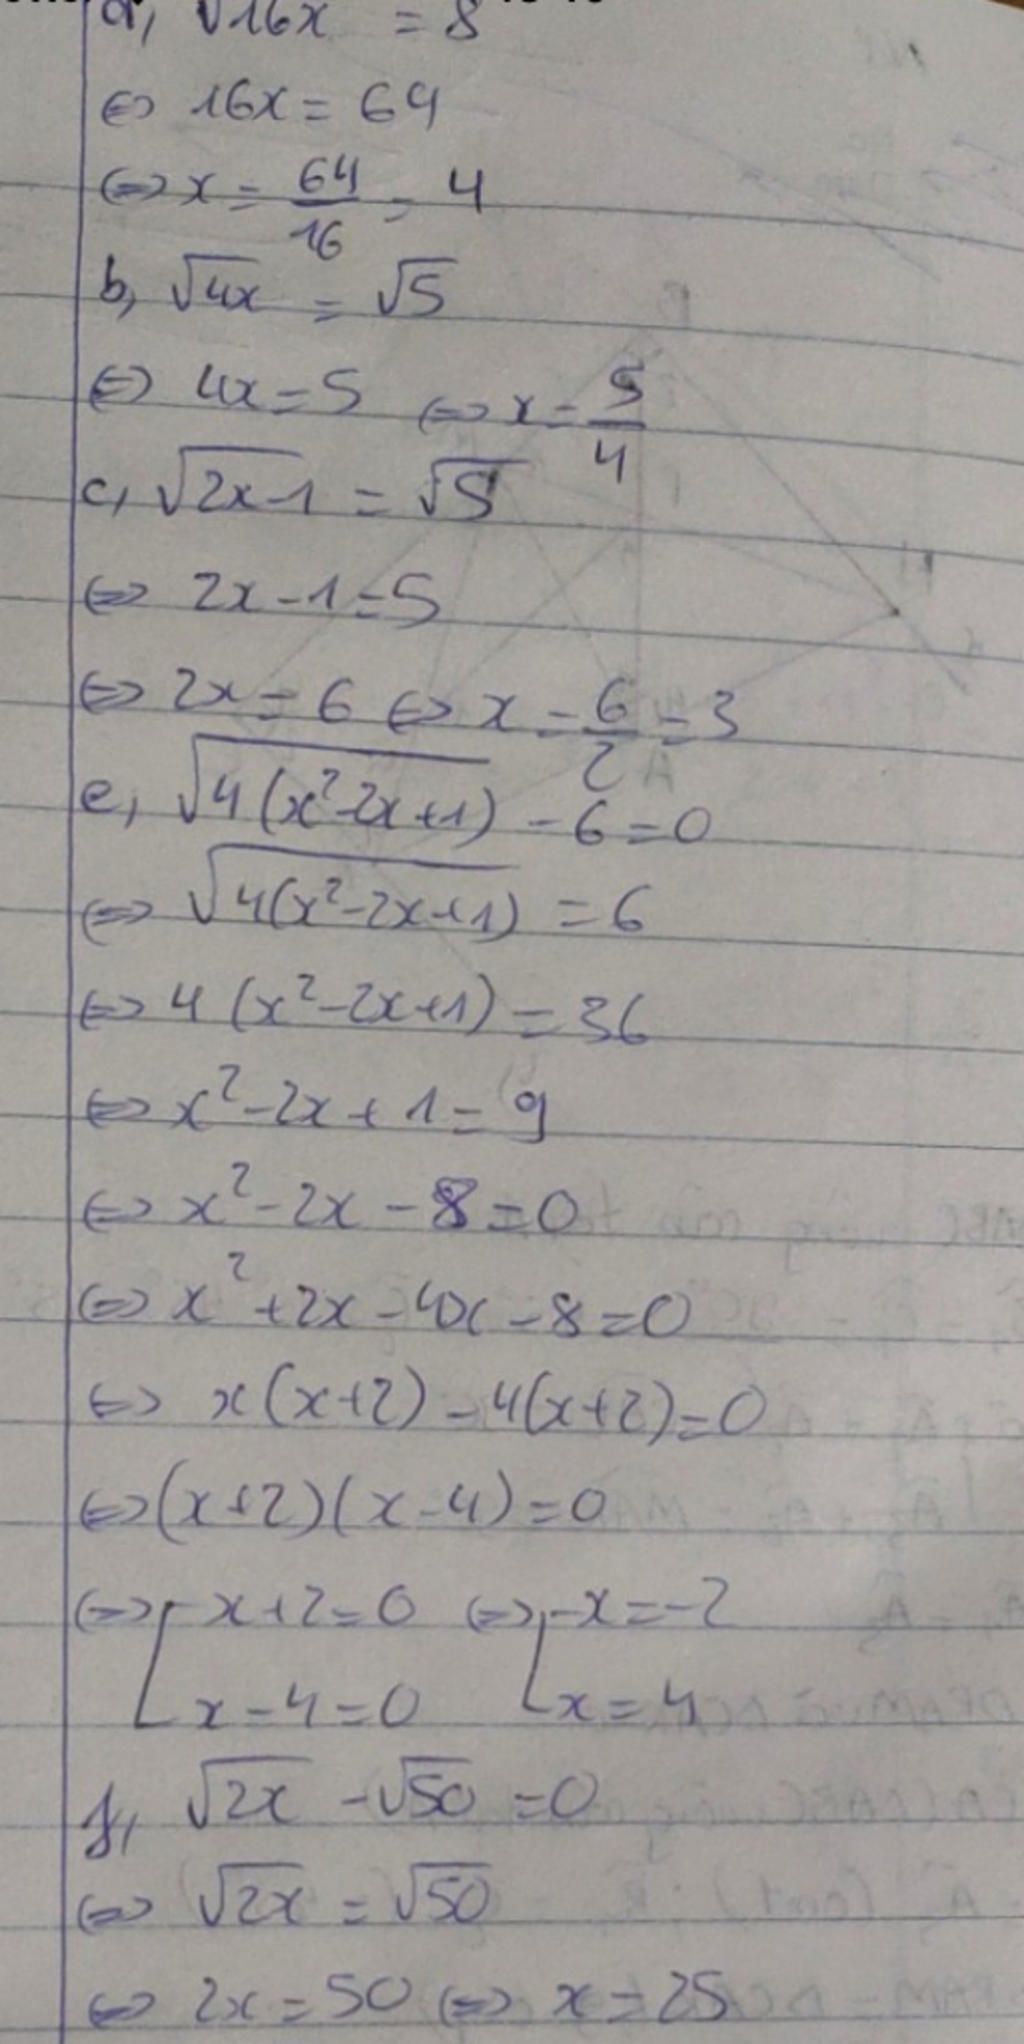 a, √16x = 8
⇔ 16x = 64
⇔ x = 64/16 = 4
b, √4x = √5
⇔ 4x = 5 ⇔ x = 5/4
c, √2x-1 = √5
⇔ 2x - 1 = 5
⇔ 2x = 6 ⇔ x = 6/2 = 3
e, √4(x²-2x+1) - 6 = 0
⇔ √4(x²-2x+1) = 6
⇔ 4(x²-2x+1) = 36
⇔ x²-2x+1 = 9
⇔ x²-2x-8=0
⇔ x²+2x-4x-8=0
⇔ x(x+2)-4(x+2)=0
⇔ (x+2)(x-4)=0
⇔ [ x+2=0 ⇔ [ x=-2
x-4=0 x=4
f, √2x - √50 = 0
⇔ √2x = √50
⇔ 2x = 50 ⇔ x = 25